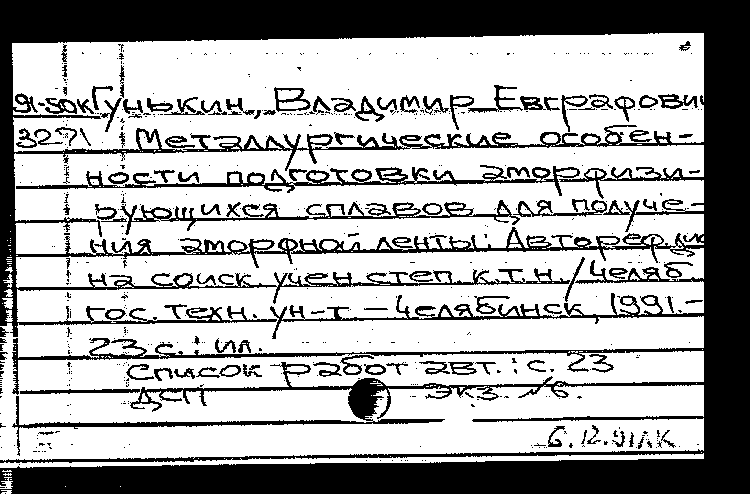 91-50к Гунькин, Владимир Евграфович
3271 Металлургические особен-
ности подготовки аморфизи-
рующихся сплавов для получе-
ния аморфной ленты: Автореф. дис
на соиск. учен. степ. к.т.н. / Челяб.
гос. техн. ун-т — Челябинск, 1991.-
23 с. : ил.
Список работ авт. : с. 23
ДСП экз. №6.
6.12.91